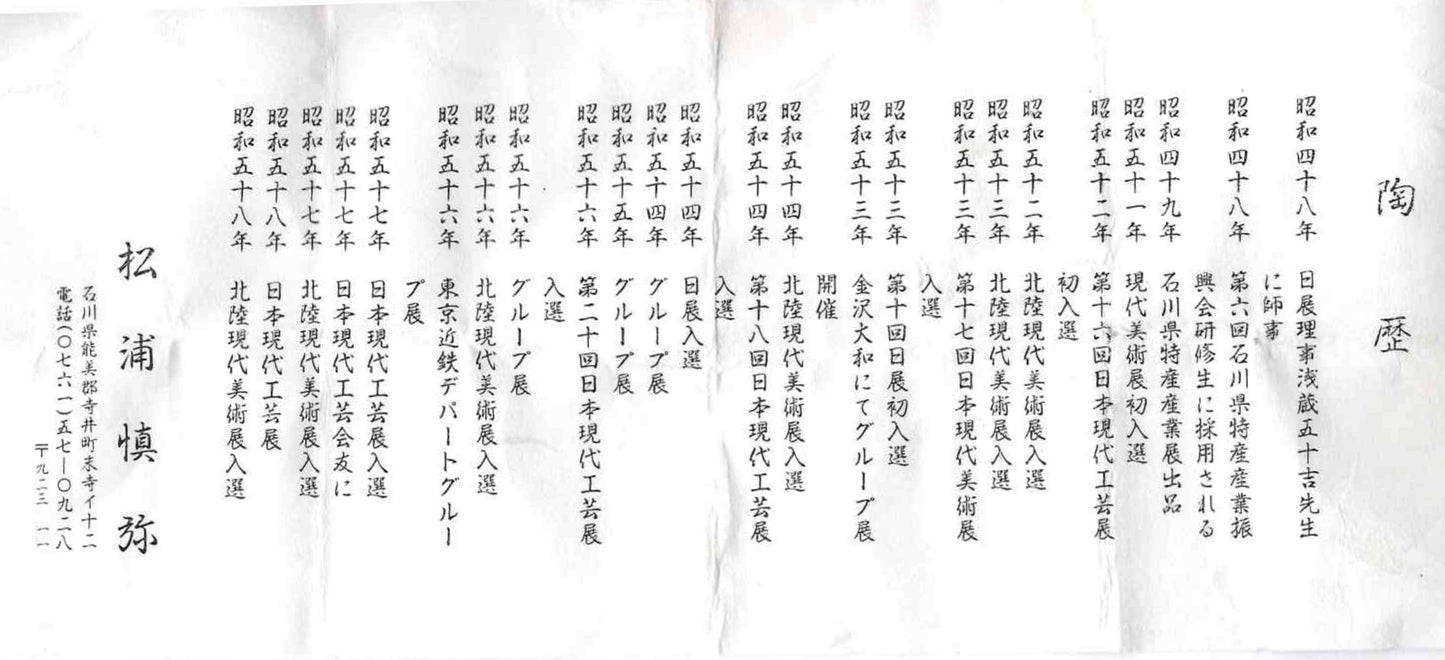 陶歴
昭和四十八年 日展理事浅蔵五十吉先生
に師事
昭和四十八年 第六回石川県特産産業振
興会研修生に採用される
昭和四十九年 石川県特産産業展出品
昭和五十一年 現代美術展初入選
昭和五十二年 第十六回日本現代工芸展
初入選
昭和五十二年 北陸現代美術展入選
昭和五十三年 北陸現代美術展入選
昭和五十三年 第十七回日本現代美術展
入選
昭和五十三年 第十回日展初入選
昭和五十三年 金沢大和にてグループ展
開催
昭和五十四年 北陸現代美術展入選
昭和五十四年 第十八回日本現代工芸展
入選
昭和五十四年 日展入選
昭和五十四年 グループ展
昭和五十五年 グループ展
昭和五十六年 第二十回日本現代工芸展
入選
昭和五十六年 グループ展
昭和五十六年 北陸現代美術展入選
昭和五十六年 東京近鉄デパートグルー
プ展
昭和五十七年 日本現代工芸展入選
昭和五十七年 日本現代工芸会友に
昭和五十七年 北陸現代美術展入選
昭和五十八年 日本現代工芸展
昭和五十八年 北陸現代美術展入選
松浦慎弥
石川県能美郡寺井町末寺イ十二
電話(〇七六一)五七ー〇九二八
〒九二三ー一一